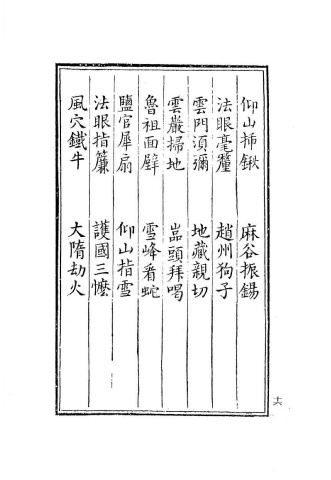 仰山插鍬　麻谷振錫
法眼毫釐　趙州狗子
雲門須彌　地藏親切
雲巖掃地　嵓頭拜喝
魯祖面壁　雪峰看蛇
鹽官犀扇　仰山指雪
法眼指簾　護國三懡
風穴鐵牛　大隋劫火
十六